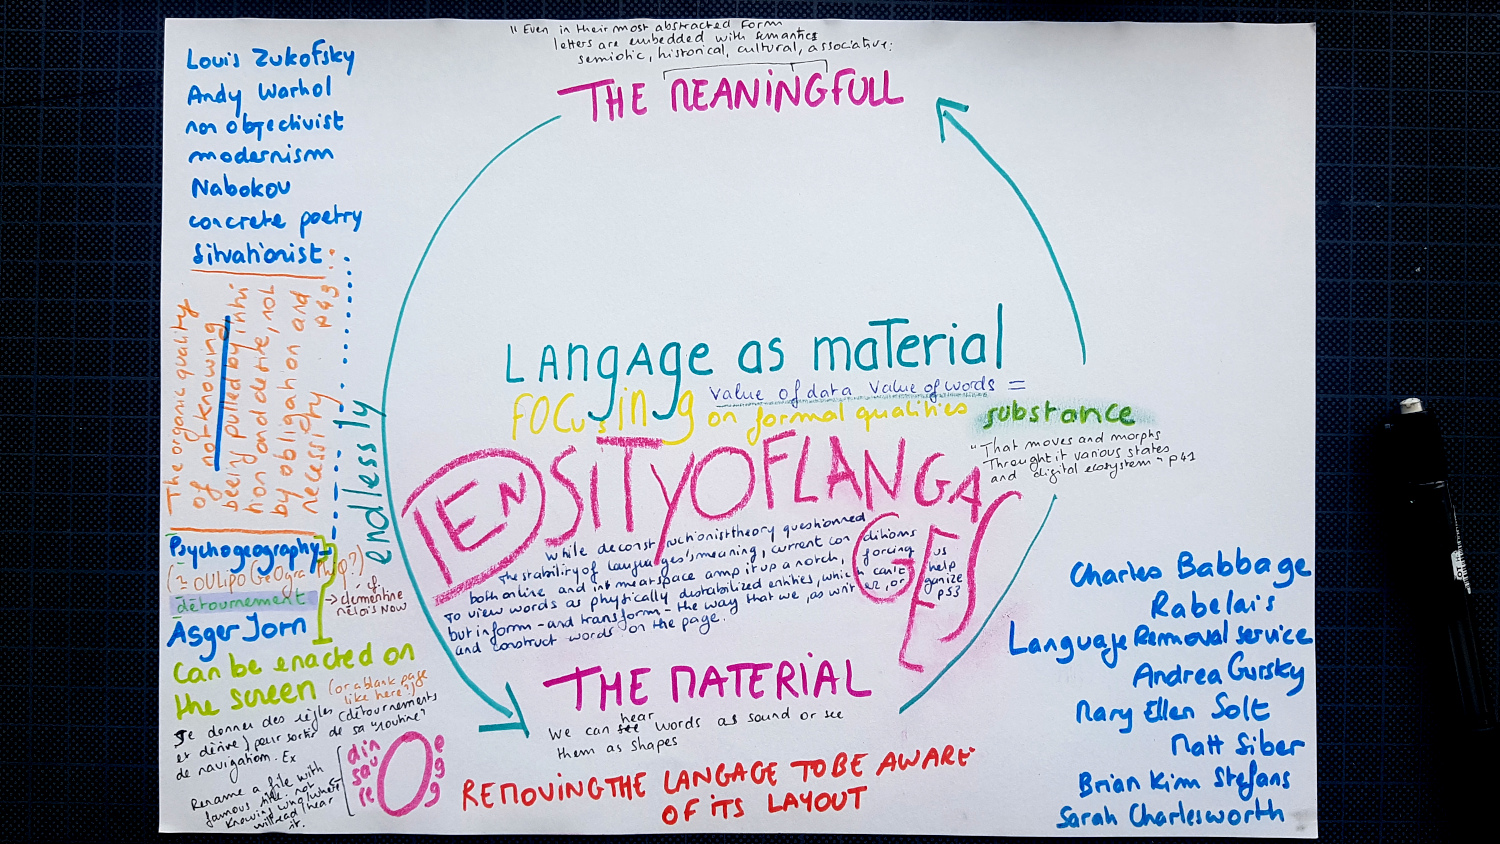 "Even in their most abstracted form
letters are embedded with semantics
semiotic, historical, cultural, associative.
THE MEANINGFULL
Louis Zukofsky
Andy Warhol
non objectivist
modernism
Nabokov
concrete poetry
Situationist
The organic quality
of not knowing
been pulled by intui
tion and desire, not
by obligation and
necessity p49
endlessly
Langage as material
Value of data Value of words =
Focusing on formal qualities
substance
"That moves and morphs
Throught it various states
and digital ecosystem" p41
TENSITYOFLANGAGES
While deconstructionist theory questionned
the stability of languages's meaning, current conditions
both online and in meatspace amp it up a notch, forcing us
to view words as physically destabilized entities, which can't help
but inform - and transform - the way that we, as writer, organize
and construct words on the page. p53
Psychogeography
(~ OULIPO GEOgraphiq?)
détournement
→ cf clémentine
mélois Now
Asger Jorn
Can be enacted on
the screen (or a blank page
like here!)
Se donner des règles (détournements
et dérive) pour sortir de sa "routine"
de navigation. Ex
Rename a file with
famous title. not
Knowing who/where
will read/hear
it.
din
sau
re
e
g
g
THE MATERIAL
We can hear words as sound or see
them as shapes
REMOVING THE LANGAGE TO BE AWARE
OF iTS LAYOUT
Charles Babbage
Rabelais
Language Removal service
Andrea Gursky
Mary Ellen Solt
Matt Siber
Brian Kim Stefans
Sarah Charlesworth